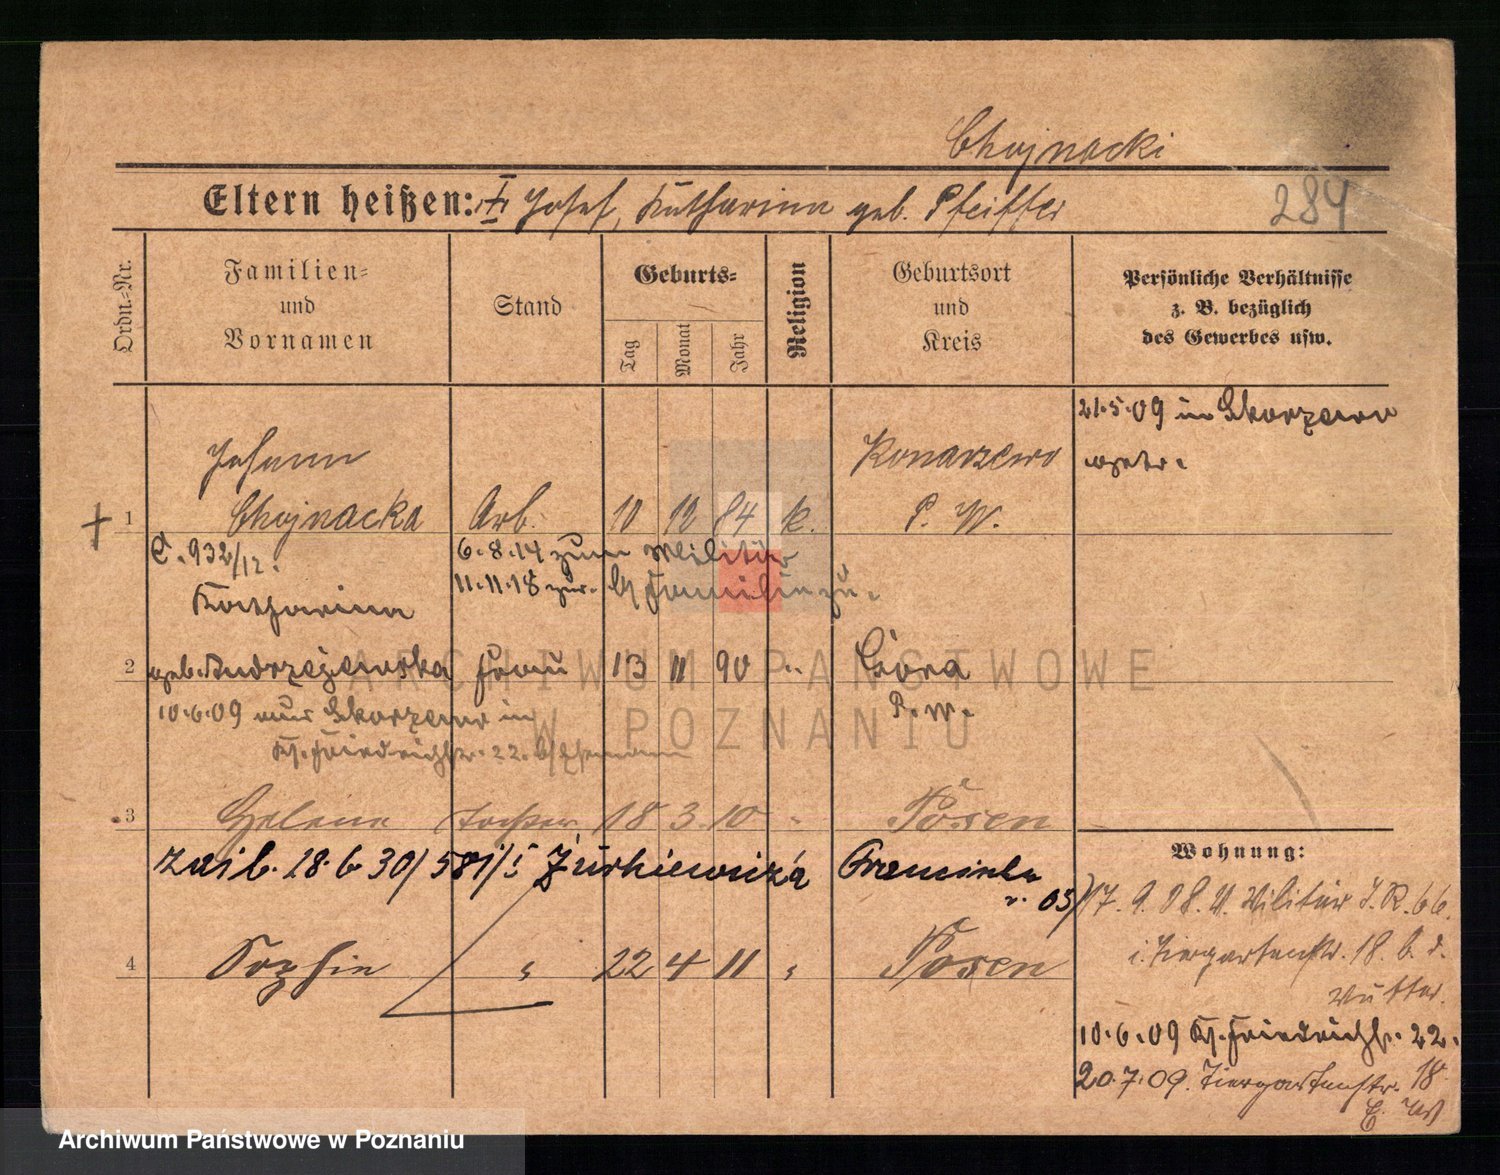 Chojnacki
Eltern heißen: Josef, Katharina geb. Pfeiffer
284
Ordn.-Nr.
Familien-
und
Vornamen
Stand
Geburts-
Tag
Monat
Jahr
Religion
Geburtsort
und
Kreis
Persönliche Verhältnisse
z. B. bezüglich
des Gewerbes usw.
21.5.09 in Skorzewo
Johann
Konarzewo
1 Chojnacka Arb. 10 12 84 k. P. W.
C. 932/12.
6.8.14 zum Militär
11.11.18 zur.
Katharina
2 geb. Andrzejewska Frau 13 11 90 " Góra
P. W.
10.6.09 aus Skorzewo in
Kl. Friedrichstr. 22. b/Ehemann
3 Helene Tochter 18 3 10 " Posen
28.6.30/581/5 Żurkiewicza
Wohnung:
17.9.08. v. Militär I.R. 66.
i. Tiergartenstr. 18. b. d.
Mutter.
4 Sophie " 22 4 11 " Posen
10.6.09 Kl. Friedrichstr. 22.
20.7.09. Tiergartenstr. 18
ARCHIWUM PAŃSTWOWE
W POZNANIU
Archiwum Państwowe w Poznaniu